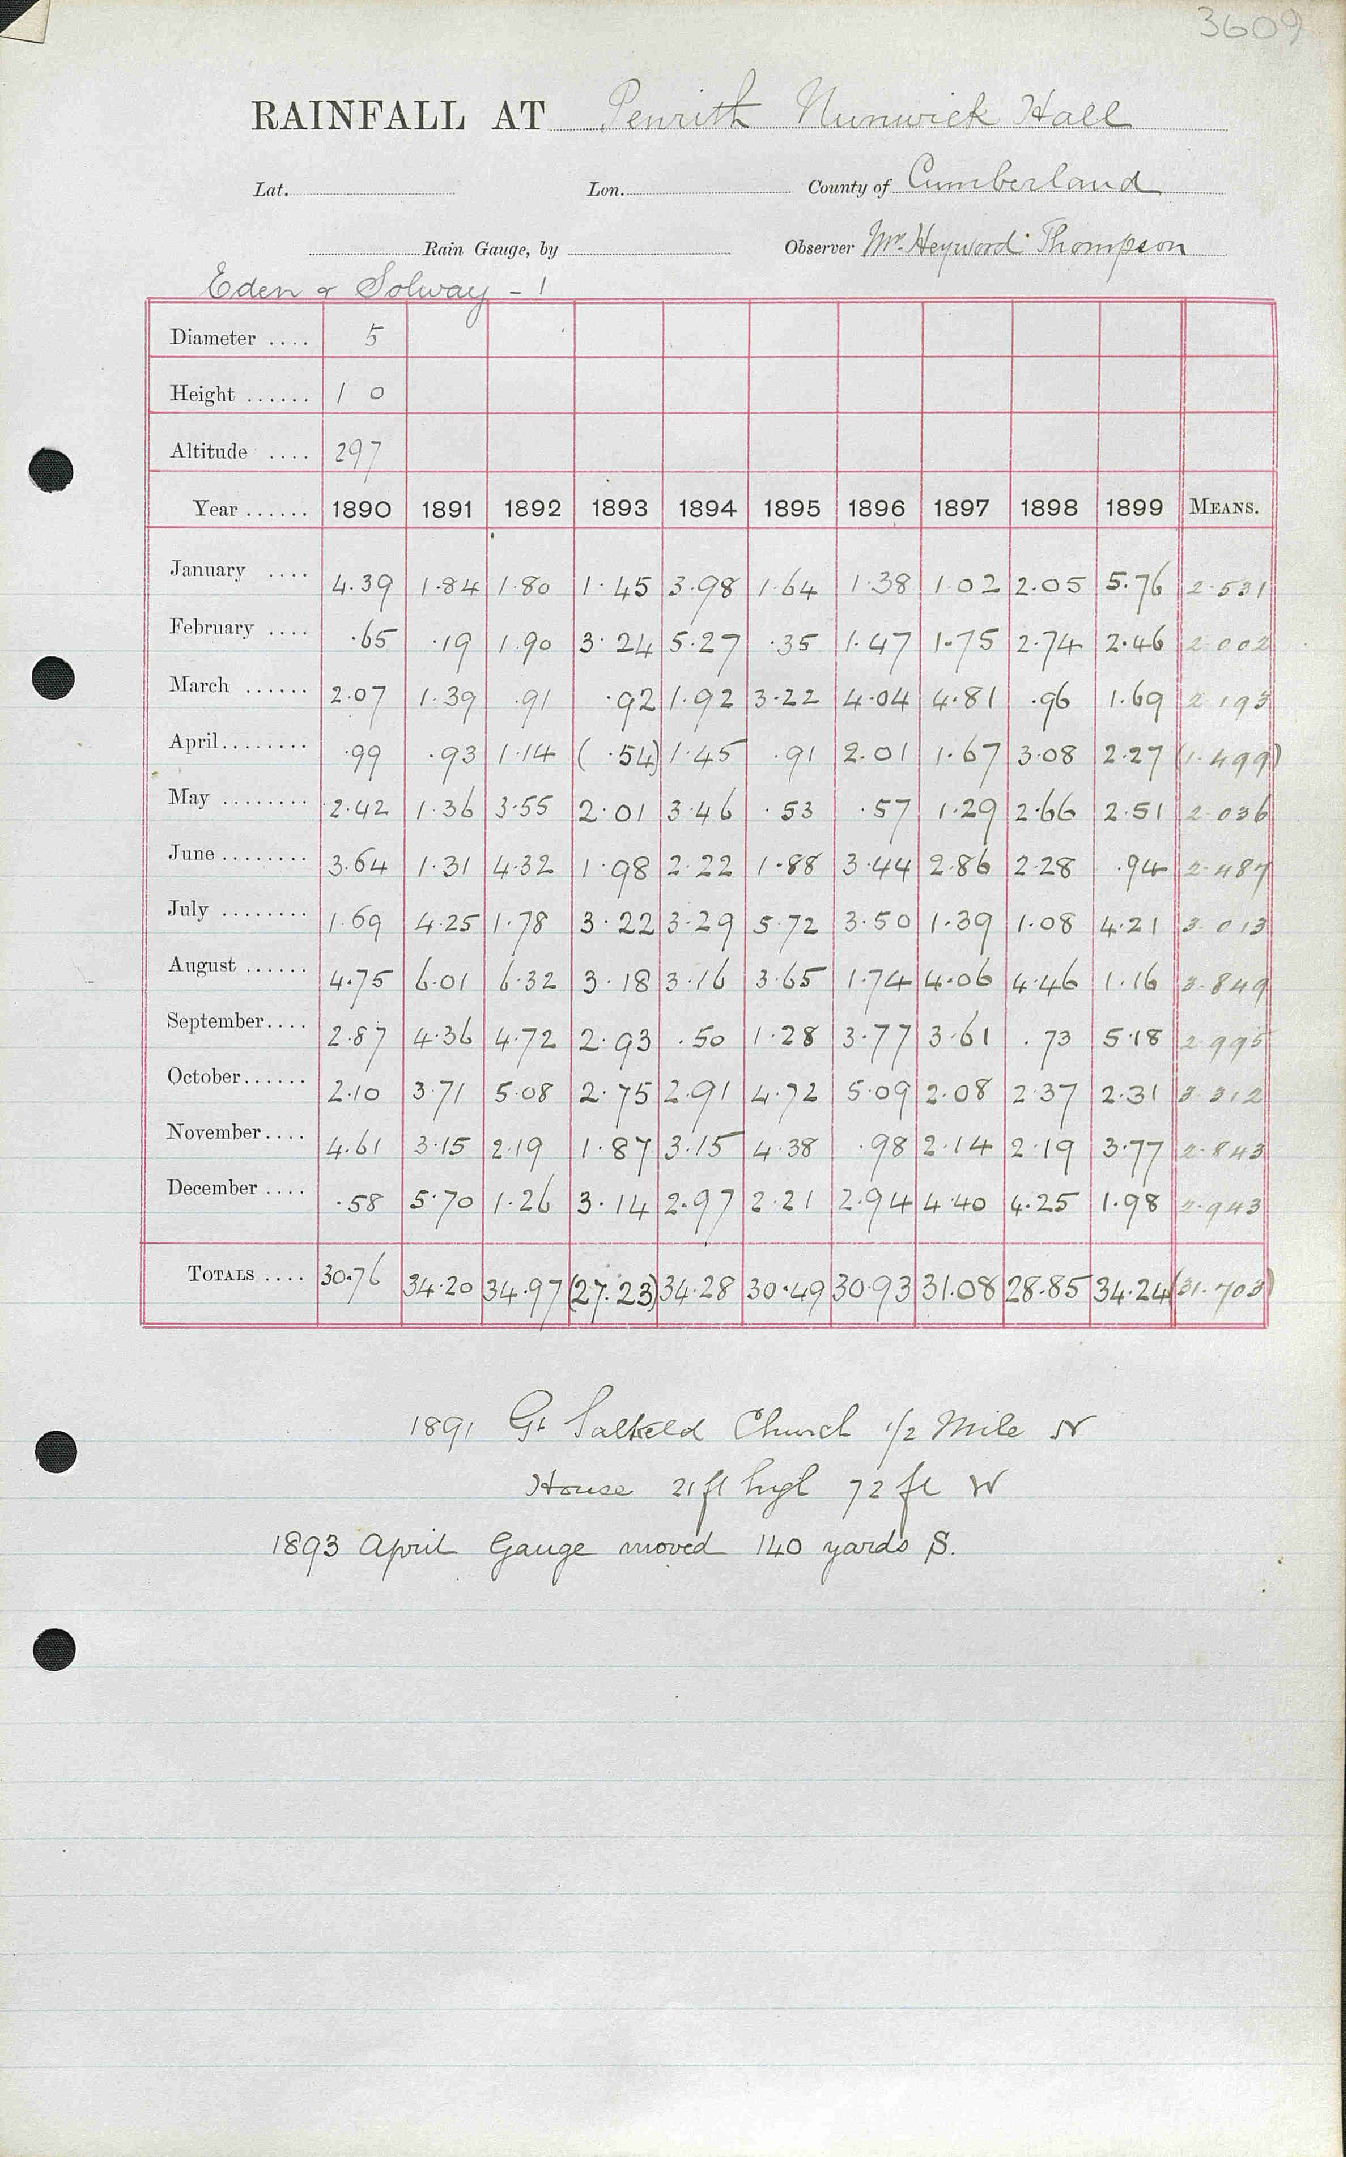 3609
RAINFALL AT Penrith Nunwick Hall
Lat. Lon. County of Cumberland
Rain Gauge, by Observer Mr. Heywood Thompson
Eden & Solway - 1
Diameter .... 5
Height ...... 1 0
Altitude .... 297
Year ...... 1890 1891 1892 1893 1894 1895 1896 1897 1898 1899 MEANS.
January .... 4.39 1.84 1.80 1.45 3.98 1.64 1.38 1.02 2.05 5.76 2.531
February .... .65 .19 1.90 3.24 5.27 .35 1.47 1.75 2.74 2.46 2.002
March ...... 2.07 1.39 .91 .92 1.92 3.22 4.04 4.81 .96 1.69 2.193
April........ .99 .93 1.14 ( .54) 1.45 .91 2.01 1.67 3.08 2.27 (1.499)
May ........ 2.42 1.36 3.55 2.01 3.46 .53 .57 1.29 2.66 2.51 2.036
June ........ 3.64 1.31 4.32 1.98 2.22 1.88 3.44 2.86 2.28 .94 2.487
July ........ 1.69 4.25 1.78 3.22 3.29 5.72 3.50 1.39 1.08 4.21 3.013
August ...... 4.75 6.01 6.32 3.18 3.16 3.65 1.74 4.06 4.46 1.16 3.849
September.... 2.87 4.36 4.72 2.93 .50 1.28 3.77 3.61 .73 5.18 2.995
October...... 2.10 3.71 5.08 2.75 2.91 4.72 5.09 2.08 2.37 2.31 3.312
November.... 4.61 3.15 2.19 1.87 3.15 4.38 .98 2.14 2.19 3.77 2.843
December .... .58 5.70 1.26 3.14 2.97 2.21 2.94 4.40 4.25 1.98 2.943
TOTALS .... 30.76 34.20 34.97 (27.23) 34.28 30.49 30.93 31.08 28.85 34.24 (31.703)
1891 Gt Salkeld Church 1/2 Mile N
House 21 ft high 72 ft W
1893 April Gauge moved 140 yards S.